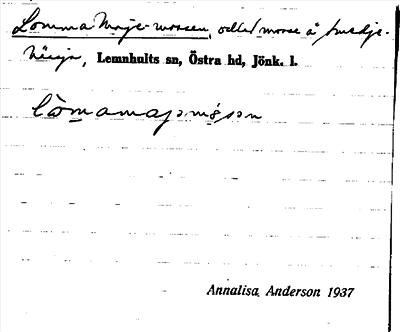 Lomma Maje-mossen, odlad mosse å Smedje-
hörja, Lemnhults sn, Östra hd, Jönk. l.
Annalisa Anderson 1937